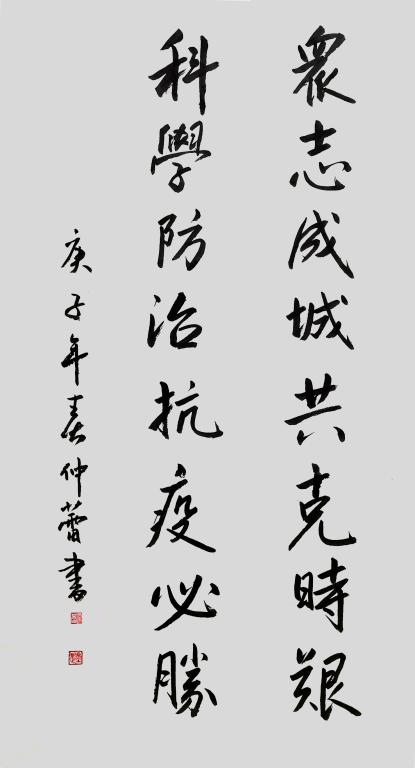 眾志成城共克時艱
科學防治抗疫必勝
庚子年春仲蕾書